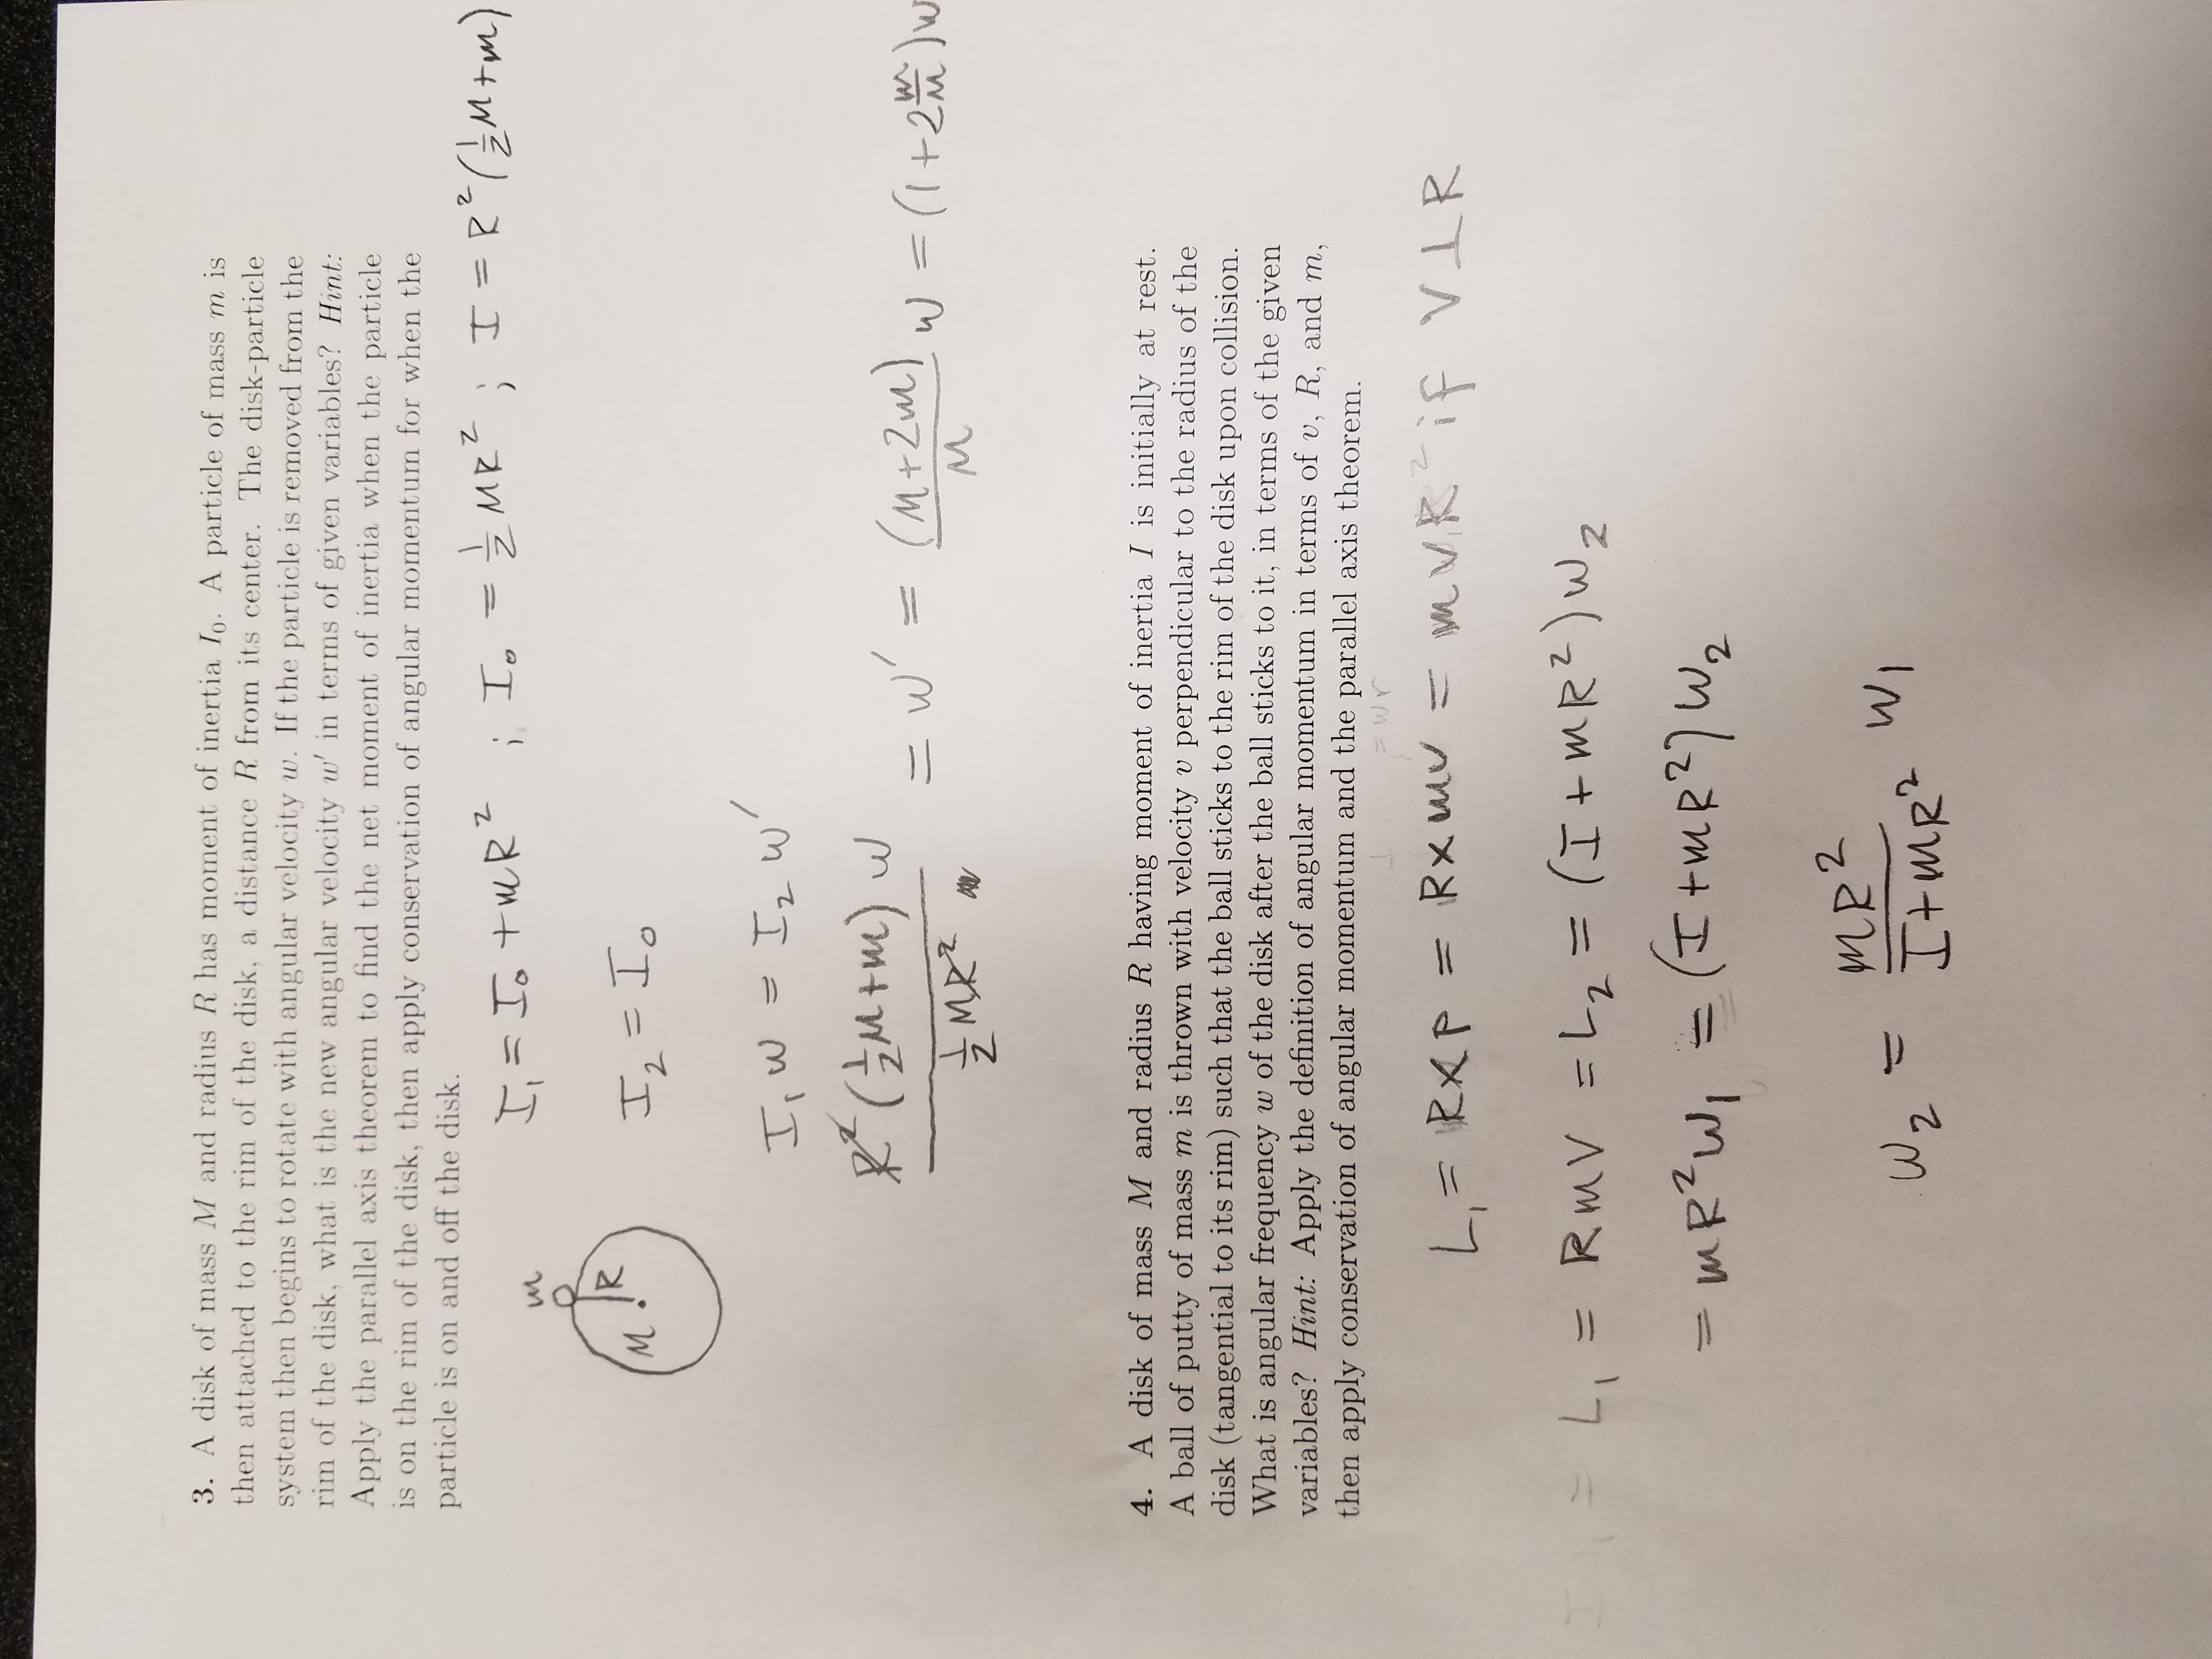 3. A disk of mass M and radius R has moment of inertia I₀. A particle of mass m is
then attached to the rim of the disk, a distance R from its center. The disk-particle
system then begins to rotate with angular velocity w. If the particle is removed from the
rim of the disk, what is the new angular velocity w′ in terms of given variables? Hint:
Apply the parallel axis theorem to find the net moment of inertia when the particle
is on the rim of the disk, then apply conservation of angular momentum for when the
particle is on and off the disk.
I₁ = I₀ + mR² ; I₀ = 1/2 MR² ; I = R²(1/2 M + m)
m
R
M
I₂ = I₀
I₁ w = I₂ w′
R²(1/2 M + m) w / (1/2 MR²) = w′ = (M+2m)/M w = (1 + 2 m/M) w
4. A disk of mass M and radius R having moment of inertia I is initially at rest.
A ball of putty of mass m is thrown with velocity v perpendicular to the radius of the
disk (tangential to its rim) such that the ball sticks to the rim of the disk upon collision.
What is angular frequency w of the disk after the ball sticks to it, in terms of the given
variables? Hint: Apply the definition of angular momentum in terms of v, R, and m,
then apply conservation of angular momentum and the parallel axis theorem.
= wr
L₁ = R×p = R×mv = mvR if V⊥R
= L₁ = RmV = L₂ = (I + mR²)w₂
= mR²w₁ = (I + mR²)w₂
w₂ = mR² / (I + mR²) w₁